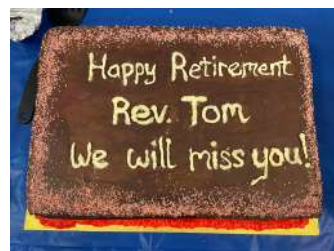 Happy Retirement
Rev. Tom
We will miss you!